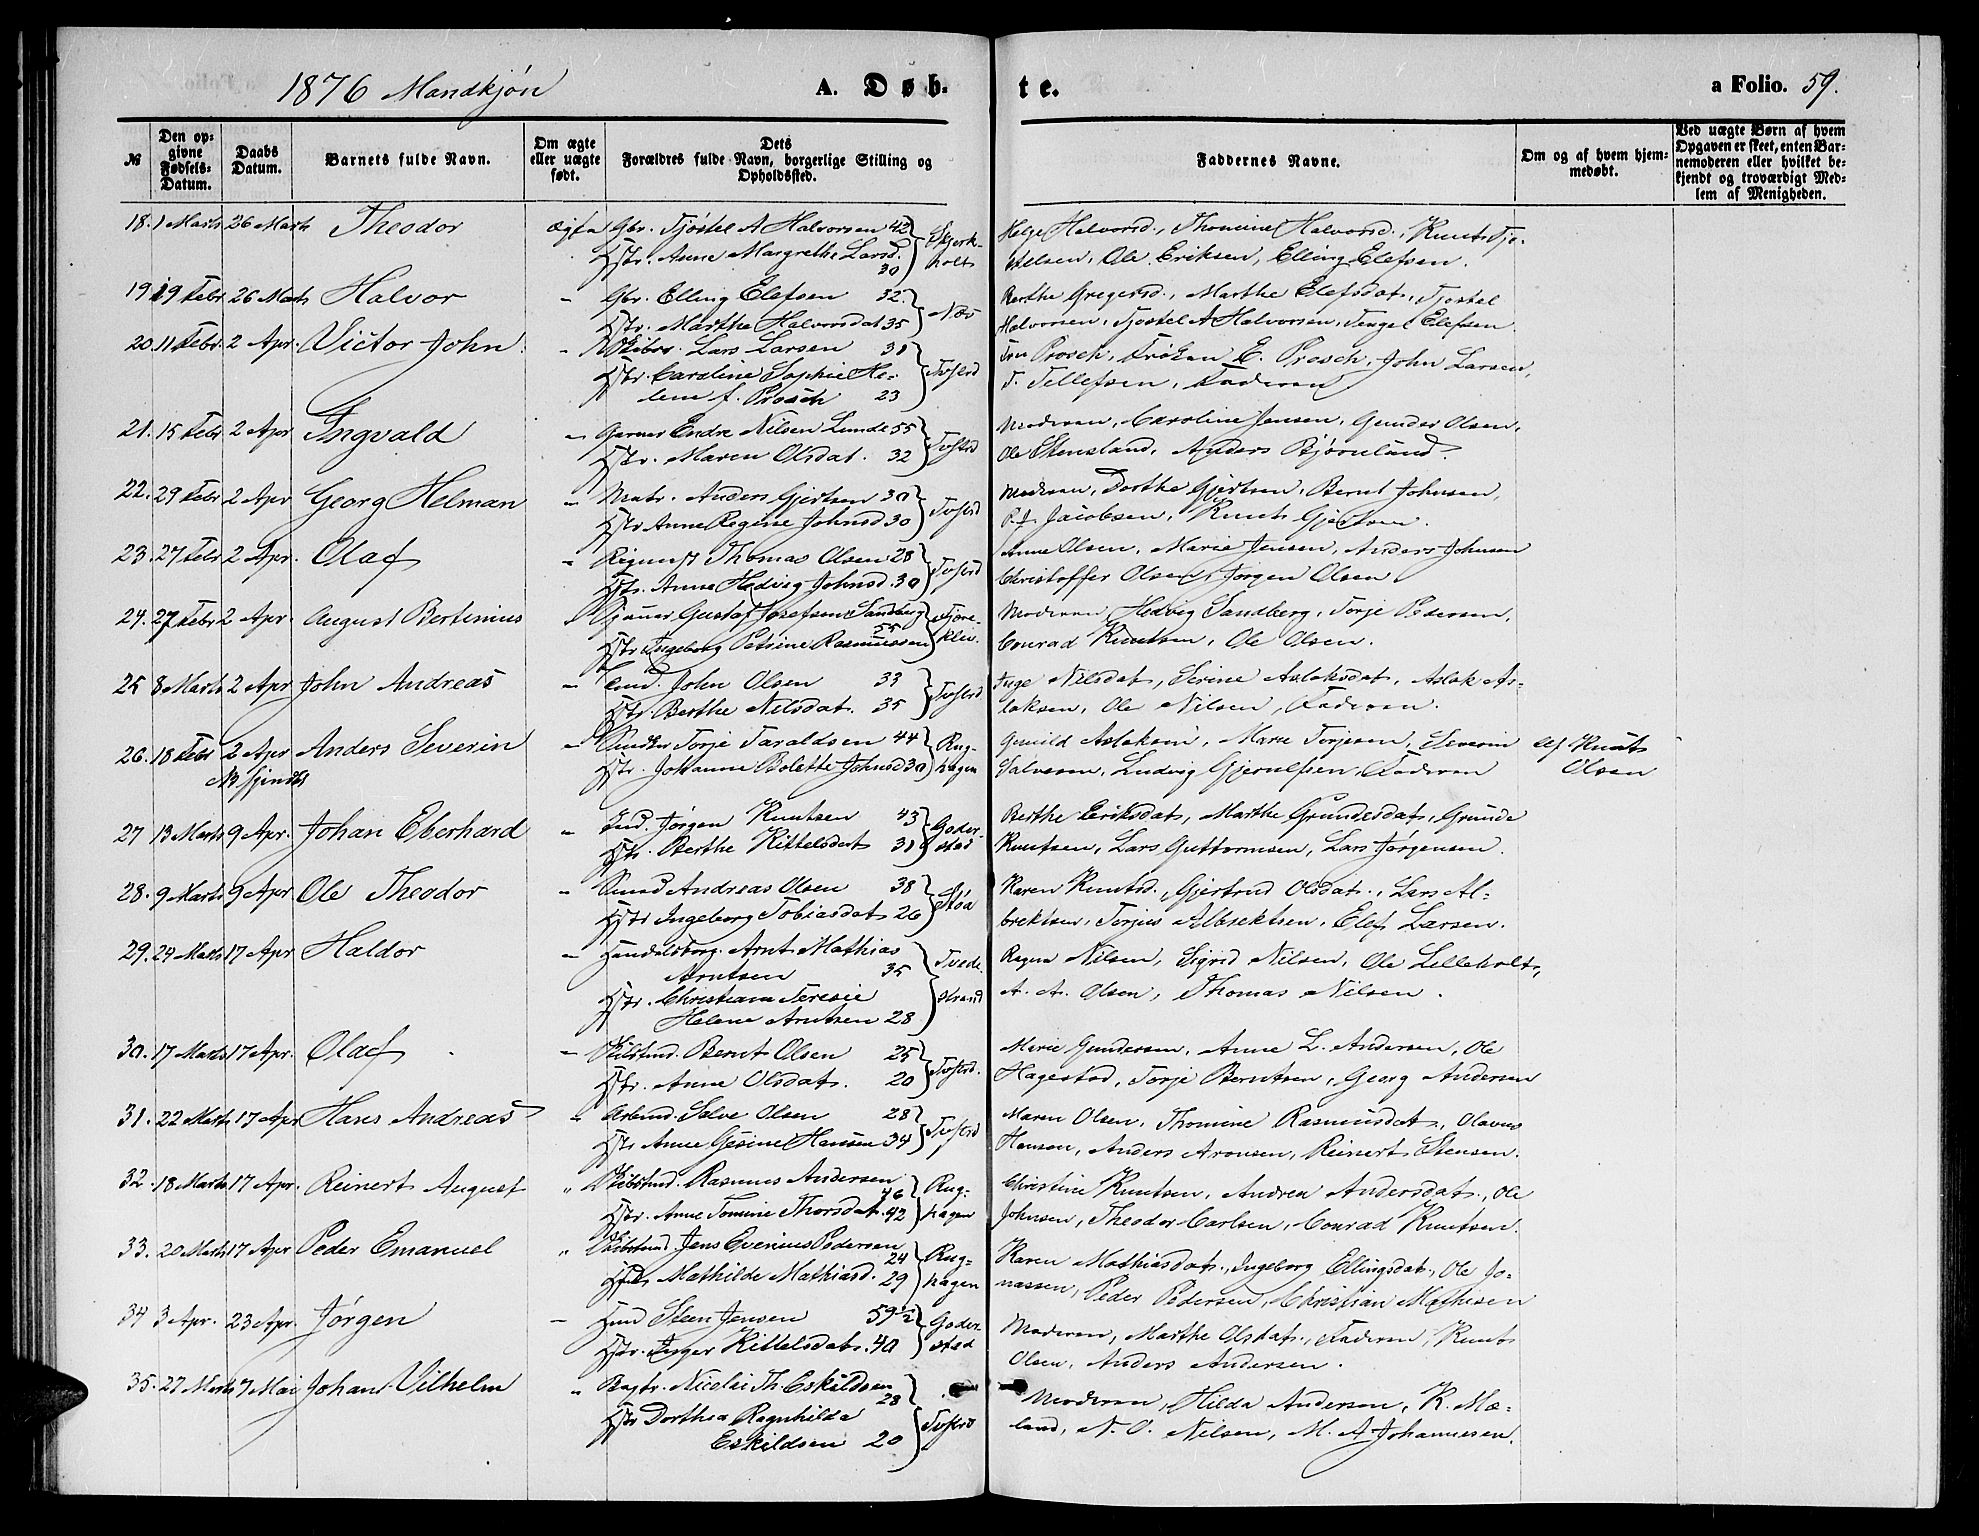 1876 Mandkjøn
A. Døb-
te.
a Folio. 59.
№
Den op-
givne
Fødsels-
Datum.
Daabs
Datum.
Barnets fulde Navn.
Om ægte
eller uægte
født.
Dets
Forældres fulde Navn, borgerlige Stilling og
Opholdssted.
Faddernes Navne.
Om og af hvem hjem-
medøbt.
Ved uægte Børn af hvem
Opgaven er skeet, enten Bar-
nemoderen eller hvilket be-
kjendt og troværdigt Med-
lem af Menigheden.
18. 1 Marts 26 Marts Theodor ægta Gbr. Tjøstel A Halvorsen 42
Hstr. Anne Margrethe Larsd. 30
Skjerk-
holt
Helje Halvorsd., Thomine Halvorsd., Knut Tjø-
stelsen, Ole Eriksen, Elling Elefsen.
19. 19 Febr 26 Marts Halvor - Gbr. Elling Elefsen 32
Hstr. Marthe Halvorsdat 35
Næs
Berthe Gregersd., Marthe Elefsdat, Tjostel
Halvorsen, Tjostel A Halvorsen, Tengel Elefsen
20. 11 Febr. 2 Apr. Victor John - Lars Larsen 31
Hstr. Caroline Sophie He-
lene f. Prosch 23
Tvstrd
Fru Prosch, Frøken E. Prosch, John Larsen,
T. Tellefsen, Faderen
21. 15 Febr 2 Apr Ingvald - Garver Endre Nilsen Lunde 55
Hstr. Maren Olsdat. 32
Tvstrd
Moderen, Caroline Jensen, Gunder Olsen,
Ole Stensland, Anders Bjørnland.
22. 29 Febr 2 Apr Georg Helman - Matr. Anders Gjertsen 30
Hstr Anne Regine Johnsd 30
Tvstrd
Moderen, Dorthe Gjertsen, Bernt Johnsen,
Jacobsen, Knut Gjertsen.
23. 27 Febr 2 Apr. Olaf - Thomas Olsen 28
Hstr. Anne Hedvig Johnsd. 30
Tvstrd
Anne Olsen, Marie Jensen, Anders Johnsen
Christoffer Olsen, Jørgen Olsen
24. 27 Febr 2 Apr. August Bertinius Gustaf Josefsen Sandberg
55
Hstr Ingeborg Petrine Rasmussen
Fjære-
kleiv.
Moderen, Hedvig Sandberg, Torje Pedersen,
Conrad Knutsen, Ole Olsen.
25 8 Marts 2 Apr John Andreas - John Olsen 33
Hstr. Berthe Nilsdat. 35
Tvstrd
Inge Nilsdat, Serine Aslaksdat, Aslak As-
laksen, Ole Nilsen, Faderen.
26. 18 Febr 2 Apr Anders Severin - Torje Taraldsen 44
Hstr. Johanne Bolette Johnsd 30
Rug-
hagen
Gunild Aslaksen, Marie Torjesen, Severin
Salvesen, Ludvig Gjerulfsen, Faderen
af Knut
Olsen
27 13 Marts 9 Apr. Johan Eberhard - Ind. Jørgen Knutsen 43
Hstr. Berthe Kittelsdat 31
Goder-
stad
Berthe Eriksdat, Marthe Grundesdat, Grunde
Knutsen, Lars Guttormsen, Lars Jørgensen.
28. 9 Marts 9 Apr Ole Theodor - Smed Andreas Olsen 38
Hstr Ingeborg Tobiasdat 26
Støa
Karen Knutsd., Gjertrud Olsdat., Lars Al-
brektsen, Torjus Albrektsen, Elef Larsen.
29. 24 Marts 17 Apr Haldor - Handelsborg. Arnt Mathias
Arntsen 35
Hstr. Christiane Teresie
Helene Arntsen 28
Tvede-
strand
Ragna Nilsen, Sigrid Nilsen, Ole Lilleholt,
A. A. Olsen, Thomas Nilsen.
30. 17 Marts 17 Apr. Olaf - Bernt Olsen 25
Hstr. Anne Olsdat. 20
Tvstrd.
Marie Gundersen, Anne L. Andersen, Ole
Hagestad, Torje Berntsen, Georg Andersen
31. 22 Marts 17 Apr Hans Andreas - Arbmd. Salve Olsen 28
Hstr Anne Gesine Hansen 34
Tvstrd
Maren Olsen, Thomine Rasmusdat, Olavus
Hansen, Anders Aronsen, Reinert Stensen.
32. 18 Marts 17 Apr. Reinert August " Rasmus Andersen
46
Hstr. Anne Tomine Thorsdat. 42
Rug-
hagen
Christine Knutsen, Andrea Andersdat., Ole
Johnsen, Theodor Carlsen, Conrad Knutsen.
33. 20 Marts 17 Apr Peder Emanuel " Jens Evenius Pedersen
24
Hstr Mathilde Mathiasd. 29
Rug-
hagen
Karen Mathiasdat., Ingeborg Ellingsdat, Ole Jo-
nassen, Peder Pedersen, Christian Mathisen
34 3 Apr. 23 Apr. Jørgen - Huusd Steen Jensen 59½
Hstr. Inger Kittelsdat. 40
Goder-
stad
Moderen, Marthe Olsdat., Faderen, Knut
Olsen, Anders Andersen.
35. 27 Marts 7 Mai Johan Vilhelm " Bogtr. Nicolai Th. Eskildsen
28
Hstr Dorthea Ragnhilda
Eskildsen 20
Tvstrd
Moderen, Hilda Andersen, K. Mæ-
land, N. O. Nilsen, M. A Johannesen.